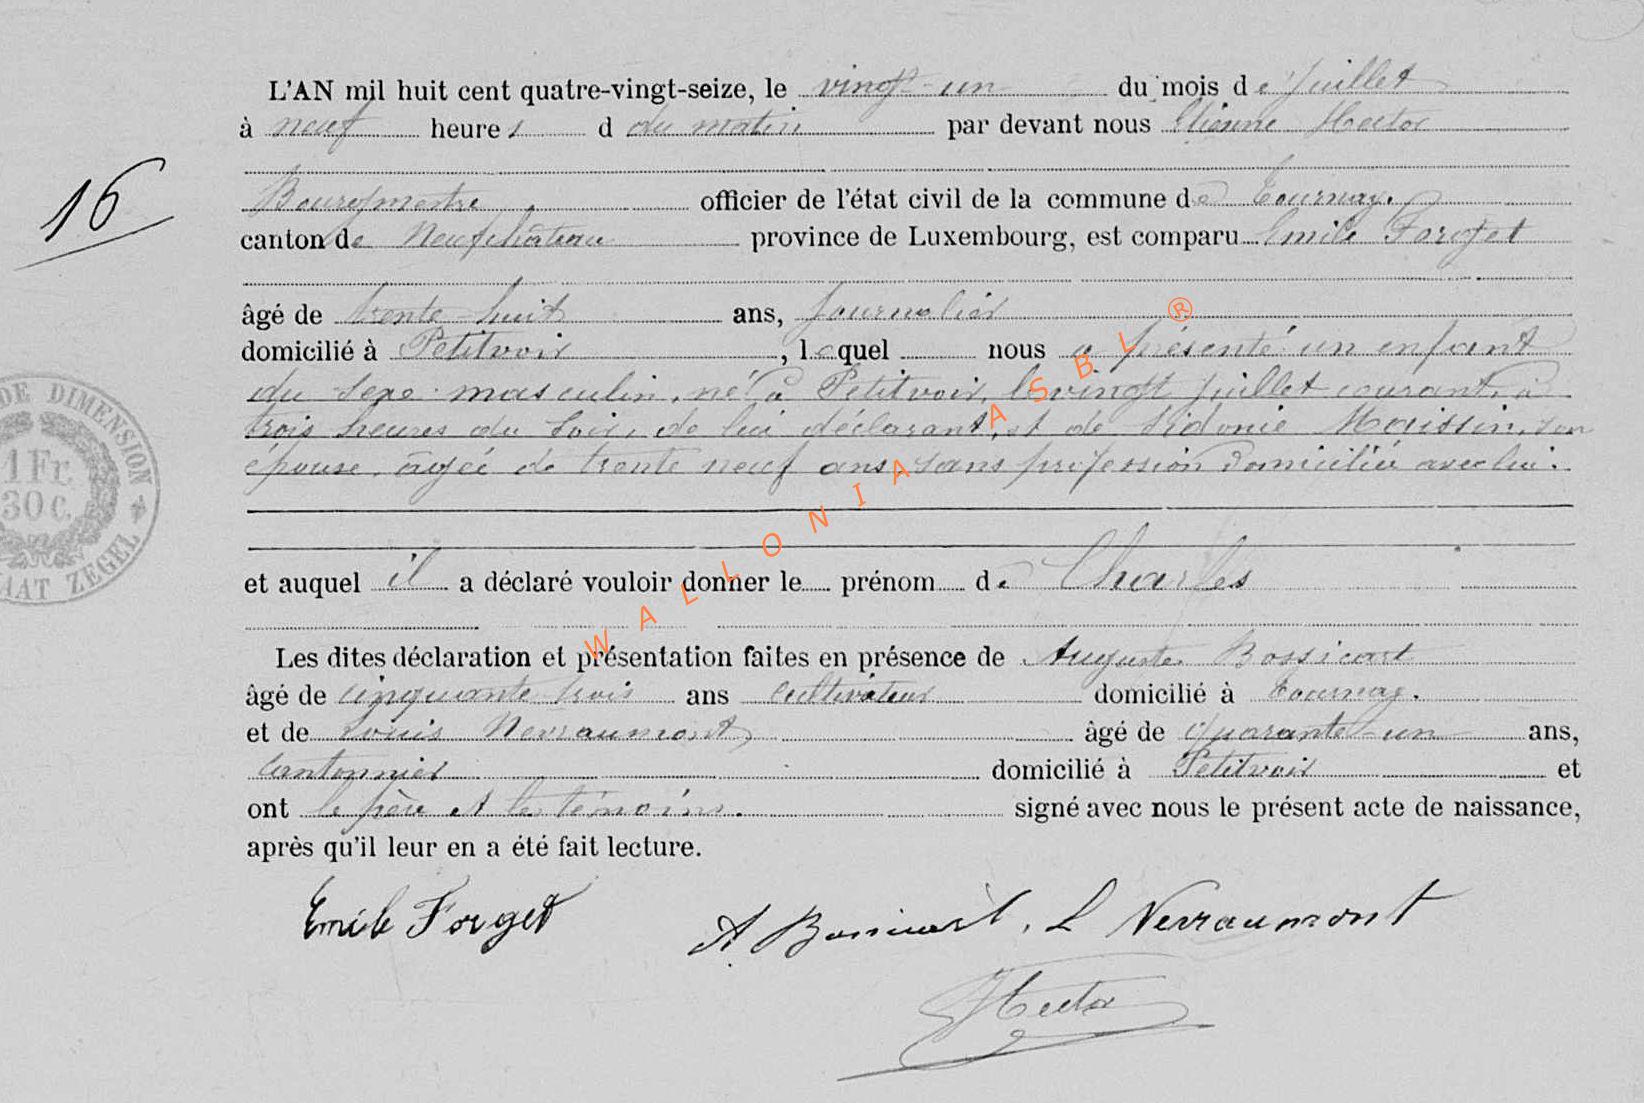 L'AN mil huit cent quatre-vingt-seize, le vingt-un du mois de Juillet
à neuf heures d du matin par devant nous Etienne Hector
16
Bourgmestre officier de l'état civil de la commune de Tournay.
canton de Neufchâteau province de Luxembourg, est comparu Emile Forget
âgé de trente-huit ans, Journalier
domicilié à Petitvoir, lequel nous a présenté un enfant
du sexe masculin, né à Petitvoir, le vingt juillet courant, à
trois heures du soir, de lui déclarant, et de Sidonie Maissin, son
épouse, âgée de trente neuf ans, sans profession domiciliée avec lui.
DE DIMENSION
1 Fr.
30 c.
ZEGEL
et auquel il a déclaré vouloir donner le prénom de Charles
Les dites déclaration et présentation faites en présence de Auguste Bossicart
âgé de cinquante trois ans cultivateur domicilié à Tournay.
et de Louis Nerraumont, âgé de quarante-un ans,
Cantonnier domicilié à Petitvoir et
ont le père et les témoins. signé avec nous le présent acte de naissance,
après qu'il leur en a été fait lecture.
Emile Forget A Bossicart. L Nerraumont
Hector
WALLONIA ASBL ®